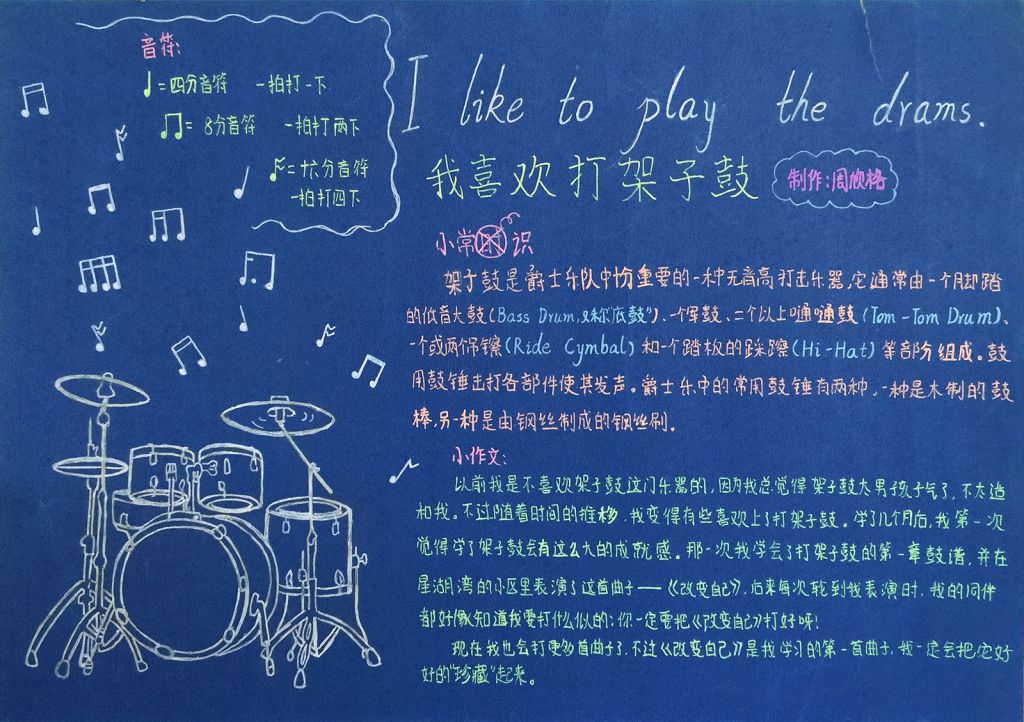 音符:
♩=四分音符 一拍打一下
♫=8分音符 一拍打两下
=十六分音符
一拍打四下
I like to play the drams.
我喜欢打架子鼓
制作:周欣格
小常识
架子鼓是爵士乐队中十分重要的一种无音高打击乐器,它通常由一个脚踏
的低音大鼓(Bass Drum,又称"底鼓")、一个军鼓、二个以上嗵嗵鼓(Tom-Tom Drum)、
一个或两个吊镲(Ride Cymbal)和一个踏板的踩镲(Hi-Hat)等部分组成。鼓
用鼓锤击打各部件使其发声。爵士乐中的常用鼓锤有两种,一种是木制的鼓
棒,另一种是由钢丝制成的钢丝刷。
小作文:
以前我是不喜欢架子鼓这门乐器的,因为我总觉得架子鼓太男孩子气了,不太适
和我。不过随着时间的推移,我变得有些喜欢上了打架子鼓。学了几个月后,我第一次
觉得学了架子鼓会有这么大的成就感。那一次我学会了打架子鼓的第一章鼓谱,并在
星湖湾的小区里表演了这首曲子——《改变自己》,后来每次轮到我表演时,我的同伴
都好像知道我要打什么似的:你一定要把《改变自己》打好呀!
现在我也会打更多首曲子了,不过《改变自己》是我学习的第一首曲子,我一定会把它好
好的"珍藏"起来。